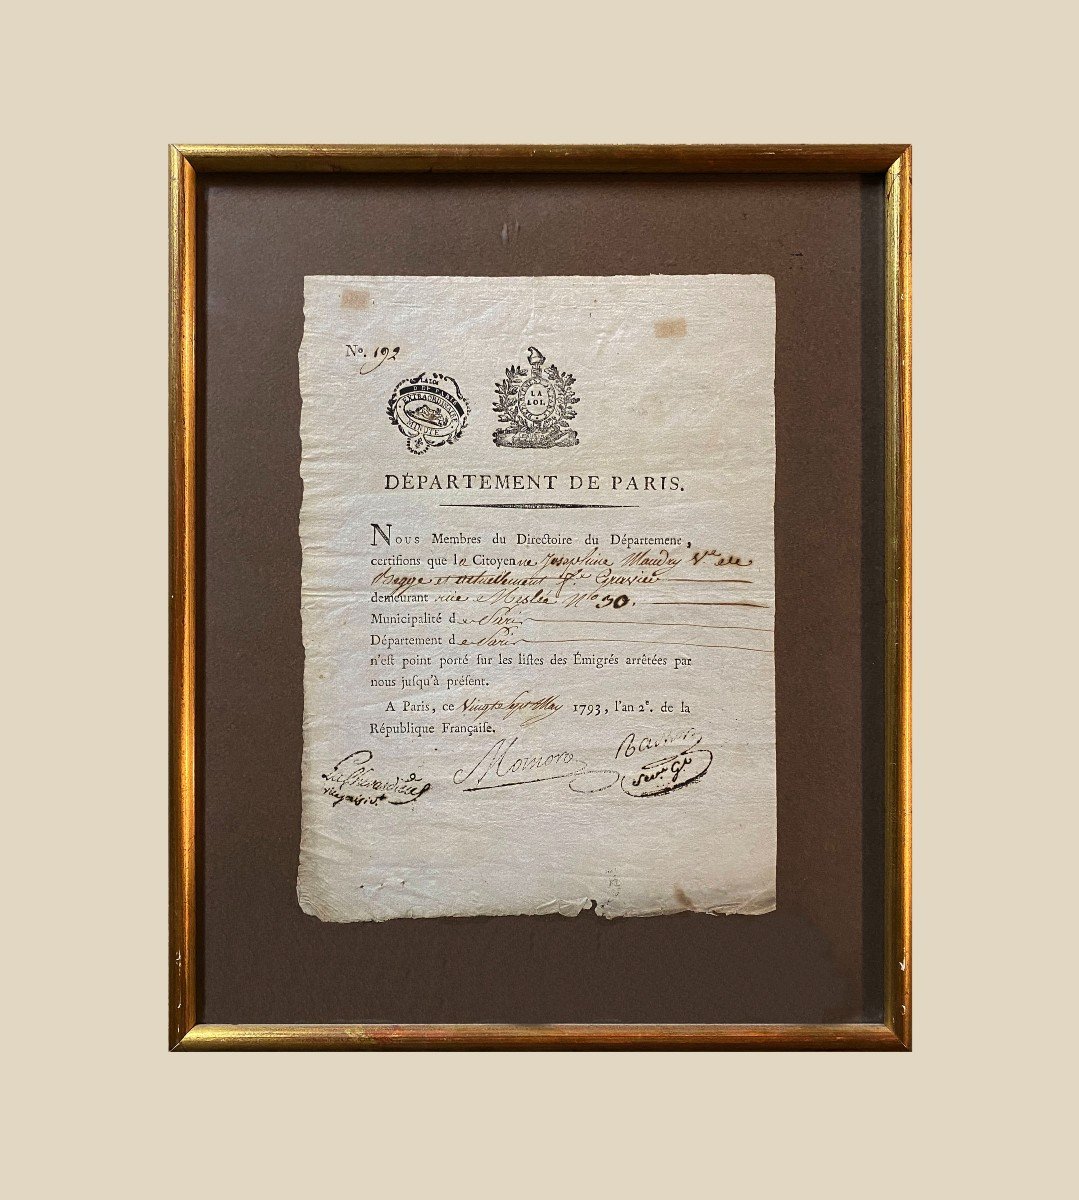 No. 192
LA LOI
D DE PARIS
EXTRAORDINAIRE
MINUTE
LA
LOI.
DÉPARTEMENT DE PARIS.
Nous Membres du Directoire du Départemene,
certifions que la Citoyenne Josephine Maudry Ve de
et actuellement fe
demeurant rue Meslée No 30.
Municipalité de Paris
Département de Paris
n'eſt point porté ſur les liſtes des Émigrés arrêtées par
nous juſqu'à préſent.
A Paris, ce Vingt sept May 1793, l'an 2e. de la
République Françaiſe.
Momoro